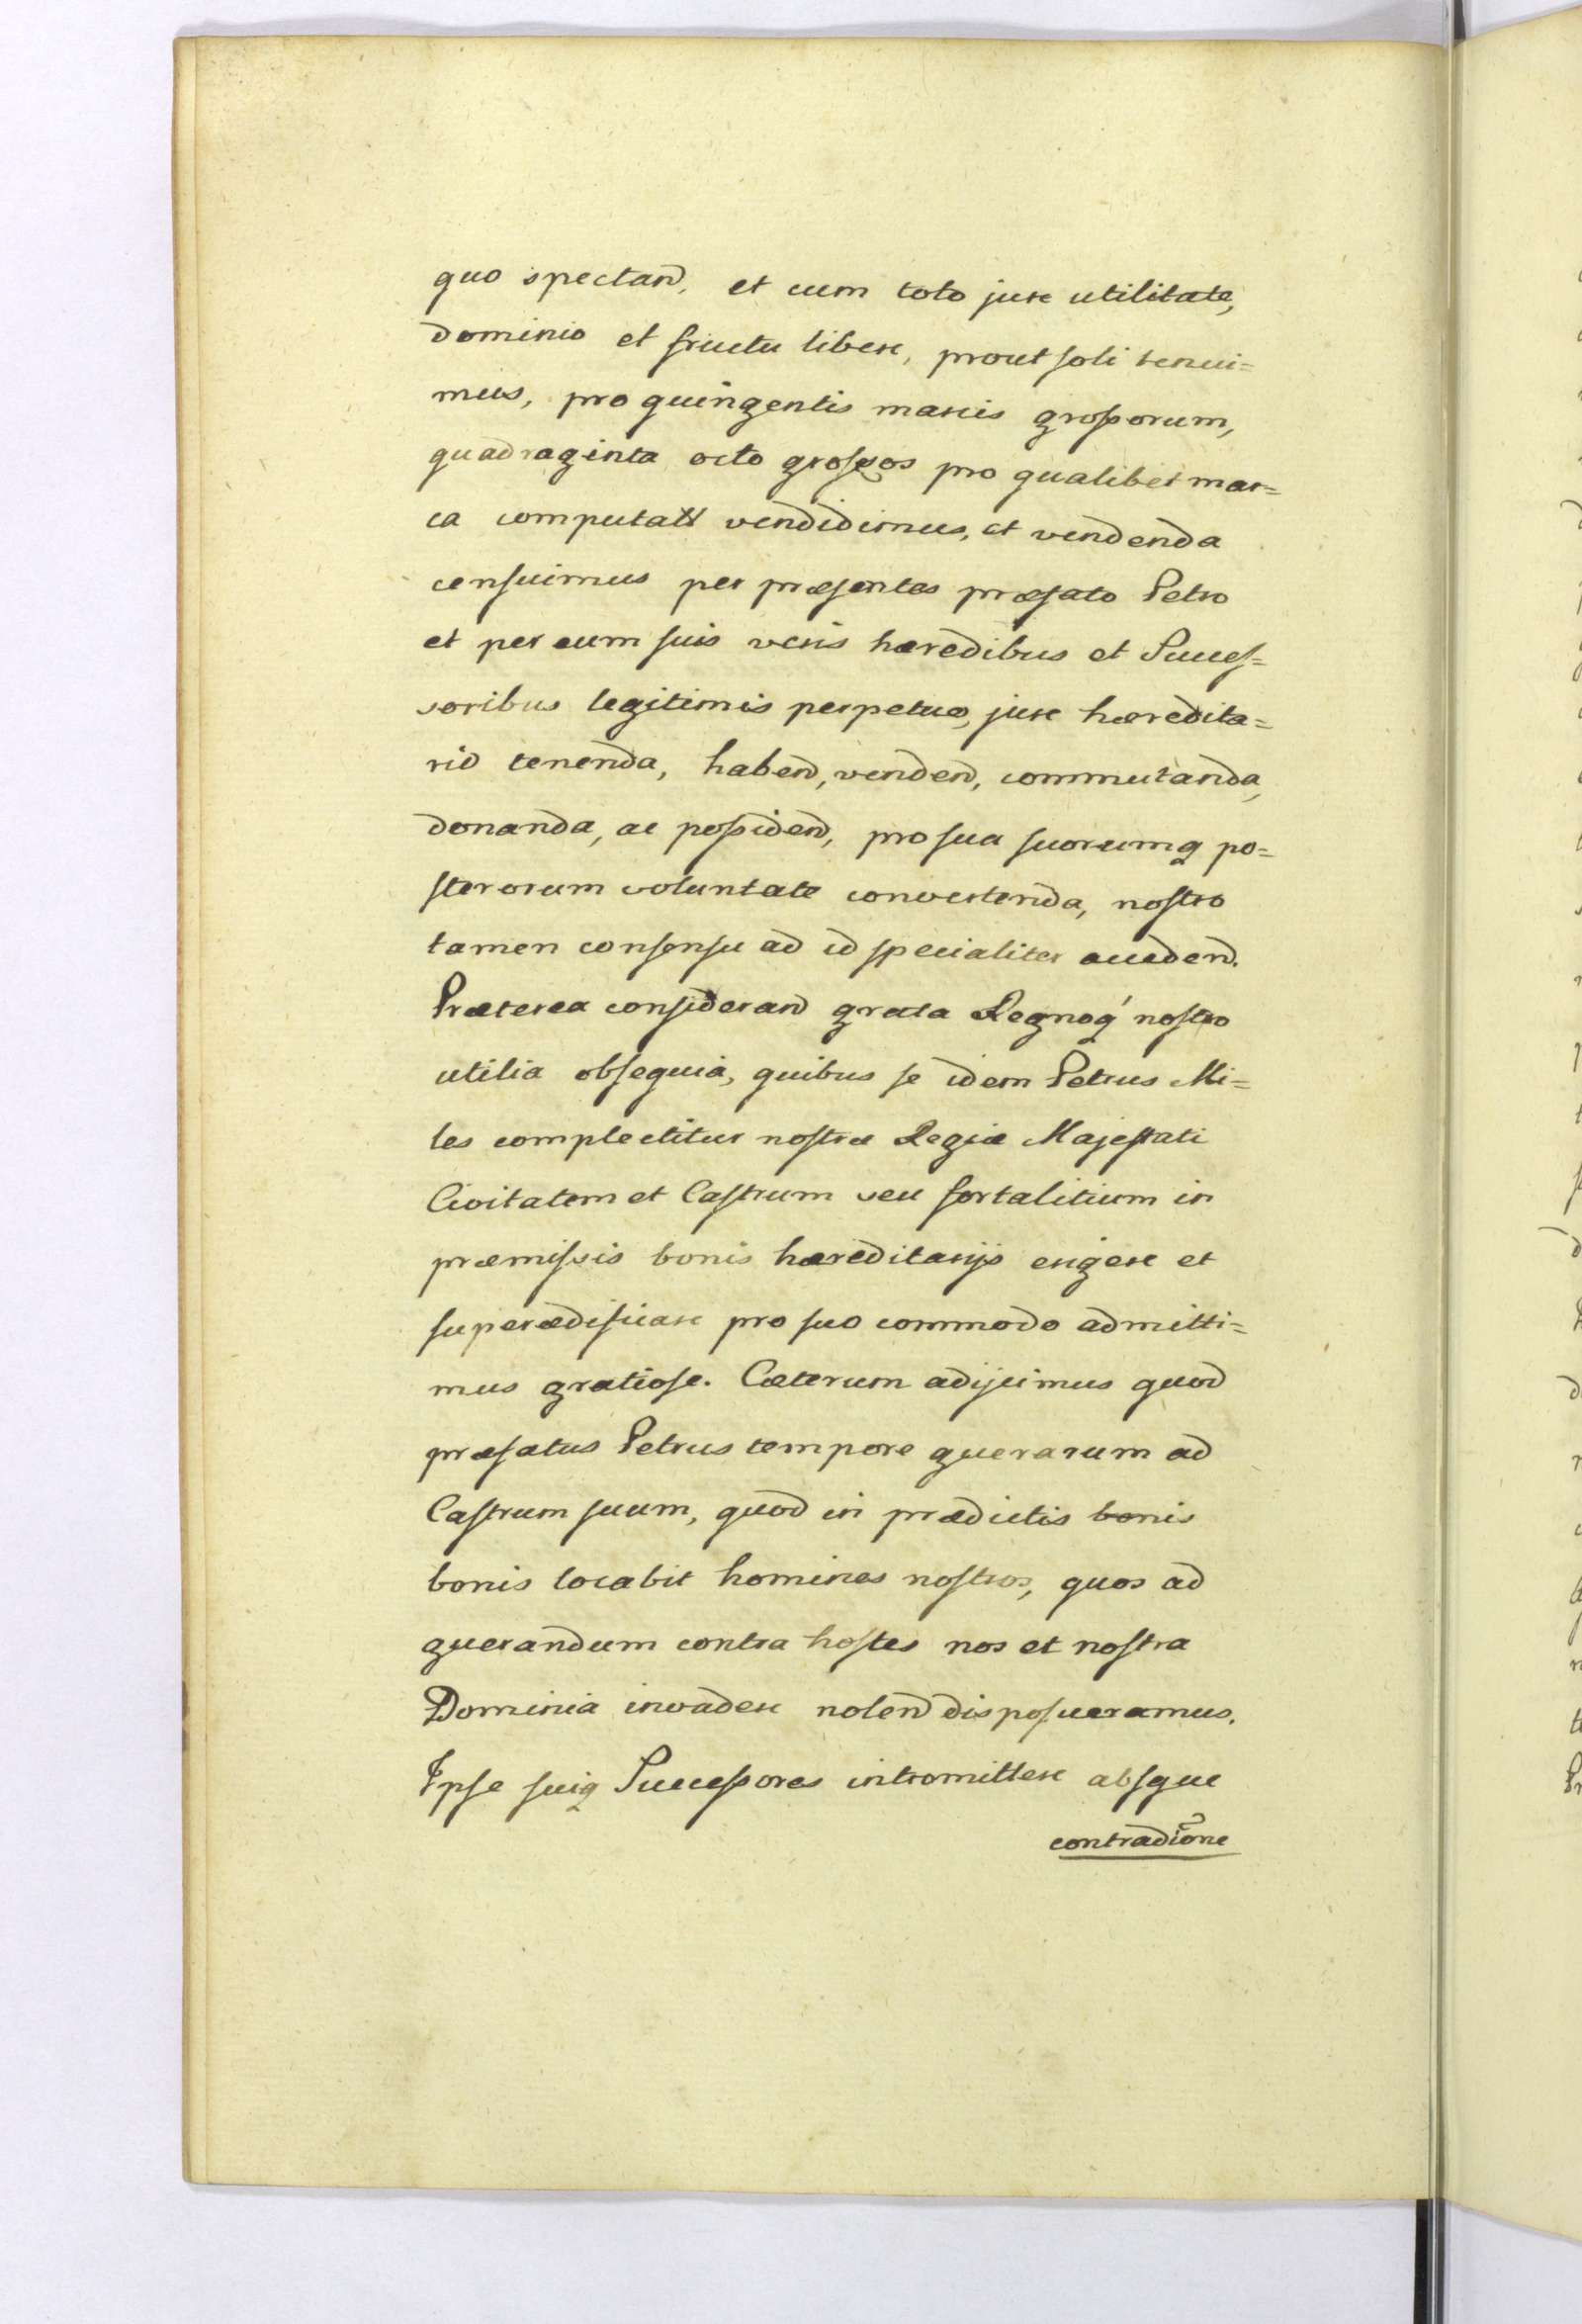 quo spectand, et cum toto jure utilitate,
dominio et fructu libere, prout soli tenui=
mus, pro quingentis marcis grossorum,
quadraginta octo grossos pro qualibet mar=
ca computatt vendidimus, et vendenda
censuimus per præsentes præfato Petro
et per eum suis veris hæredibus et Succes=
soribus legitimis perpetuo, jure hæredita=
rio tenenda, habend, venden, commutanda,
donanda, ac possidend, pro sua suorumq po=
sterorum voluntate convertenda, nostro
tamen consensu ad id specialiter acceden.
Præterea considerand grata Regnoq́ nostro
utilia obsequia, quibus se idem Petrus Mi=
les complectitur nostræ Regiæ Majestati
Civitatem et Castrum seu fortalitium in
præmissis bonis hæreditarijs erigere et
superædificare pro suo commodo admitti=
mus gratiose. Cæterum adijcimus quod
præfatus Petrus tempore guerarum ad
Castrum suum, quod in prædictis bonis
bonis locabit homines nostros, quos ad
guerandum contra hostes nos et nostra
Dominia invadere nolend disposueramus.
Ipse suiq Successores intromittere absque
contradiōne